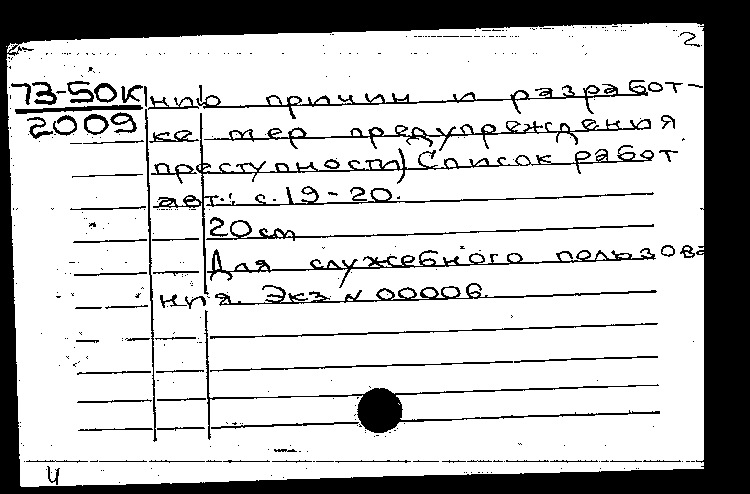 2
73-50К нию причин и разработ-
2009 ке мер предупреждения
преступности) Список работ
авт.: с. 19-20.
20 см
Для служебного пользова
ния. Экз N 00006.
4